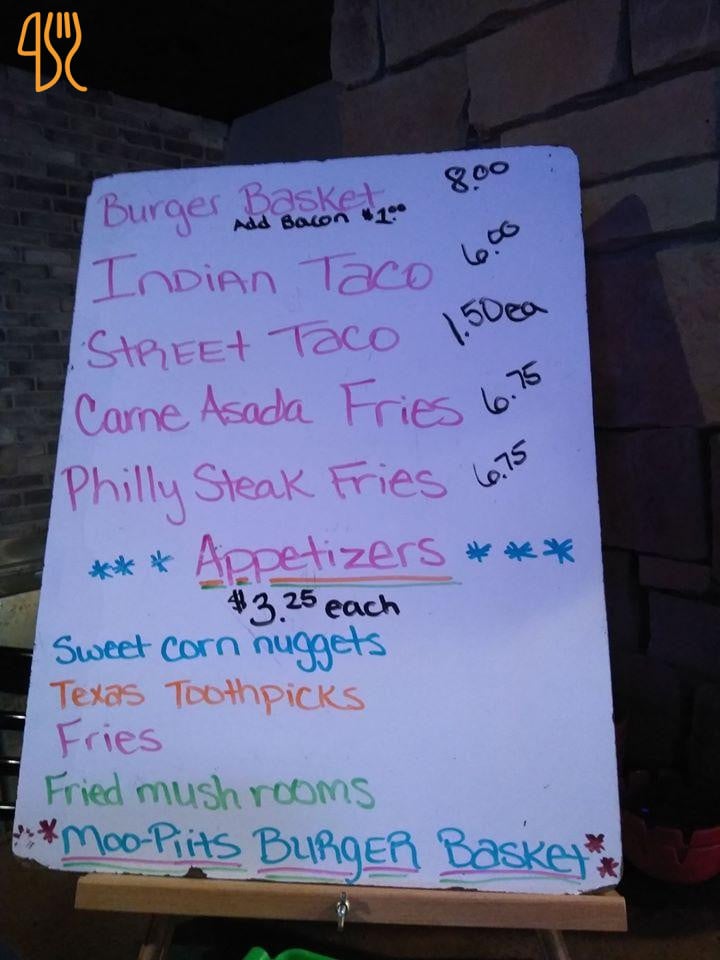 Burger Basket 8.00
Add Bacon $1.00
Indian Taco 6.00
Street Taco 1.50 ea
Carne Asada Fries 6.75
Philly Steak Fries 6.75
*** Appetizers ***
$3.25 each
Sweet corn nuggets
Texas Toothpicks
Fries
Fried mushrooms
* Moo-Piits BURgER Basket *